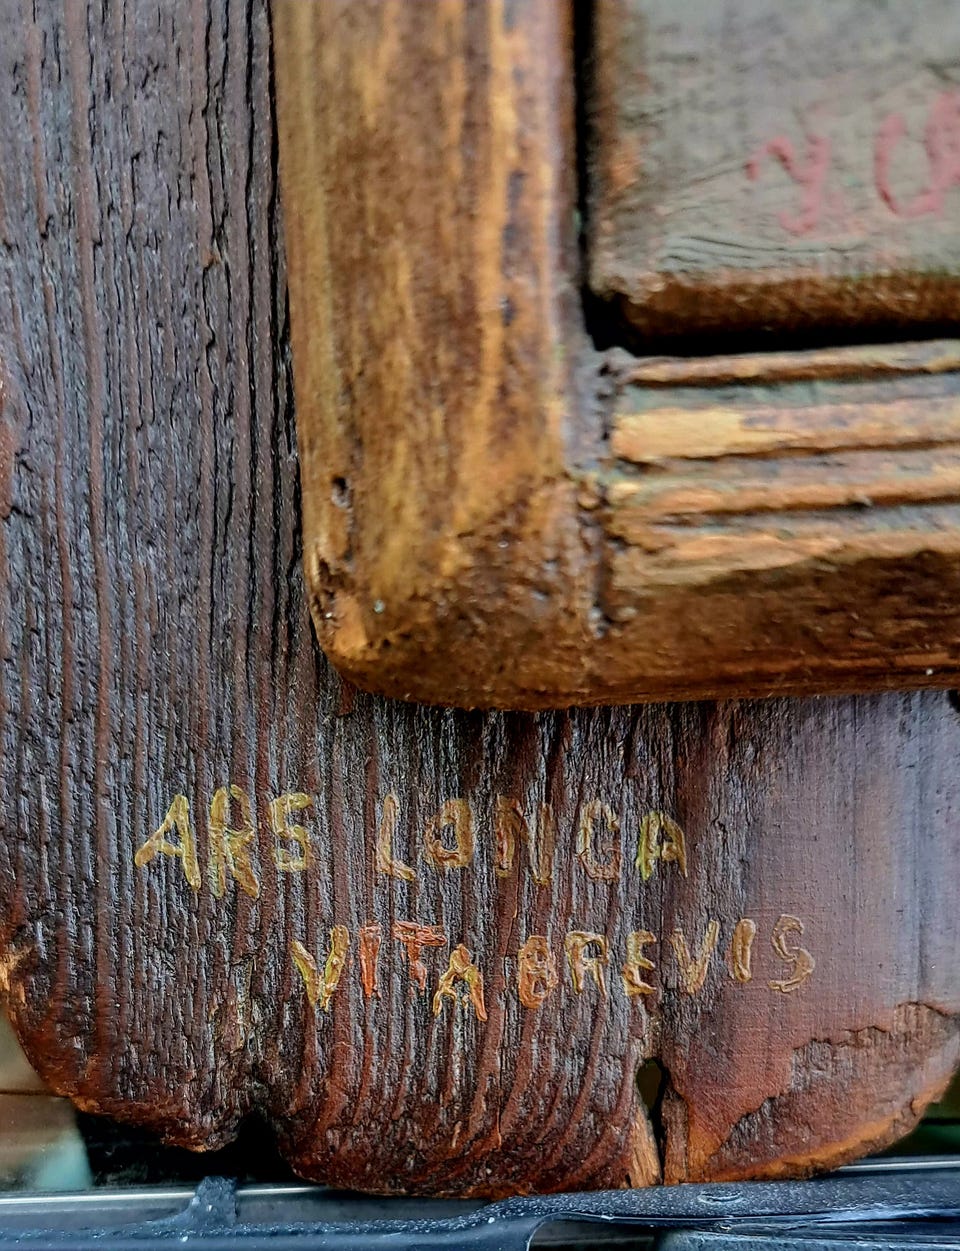 ARS LONGA
VITA BREVIS